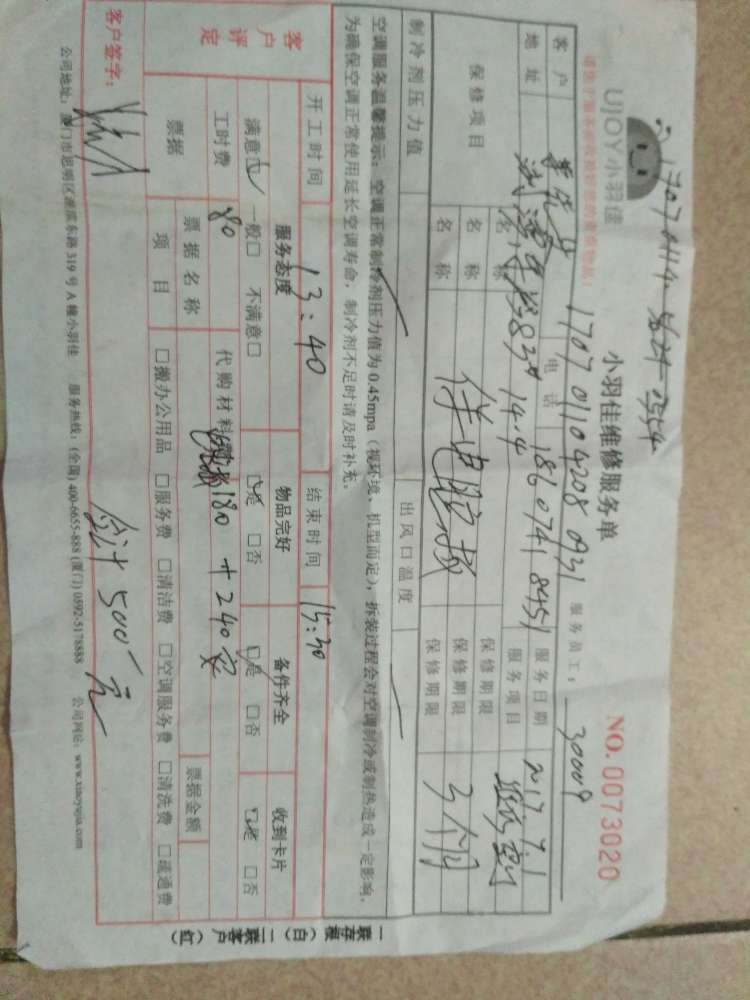 170701114
UJOY小羽佳
小羽佳维修服务单
NO.0073020
1707011042080931
服务员工：
30009
客户
电话
18607418451
服务日期
2017.7.1
地址
服务项目
保修项目
名称
保修期限
名称
修电脑板
保修期限
3个月
名称
保修期限
制冷剂压力值
出风口温度
空调服务温馨提示：空调正常制冷剂压力值为0.45mpa（视环境、机型而定），拆装过程会对空调制冷或制热造成一定影响，
为确保空调正常使用延长空调寿命，制冷剂不足时请及时补充。
开工时间
13:40
结束时间
15:30
客户评定
服务态度
物品完好
备件齐全
收到卡片
满意☑ 一般□ 不满意□
☑是 □否
☑是 □否
☑是 □否
工时费
80
代购材料
180 + 240
票据
票据名称
票据金额
项目
□搬办公用品 □服务费 □清洁费 □空调服务费 □清洗费 □疏通费
客户签字：
合计500元
公司地址：厦门市思明区莲溪东路319号A幢小羽佳 服务热线：(全国) 400-6655-888 (厦门) 0592-5178888 公司网站：www.xiaoyujia.com
一联存根（白）二联客户（红）